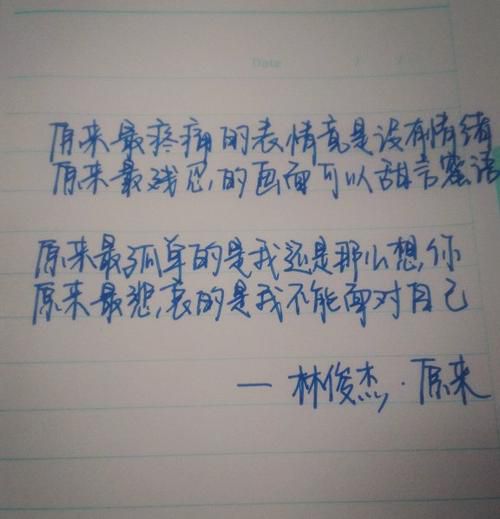 Date / /
原来最疼痛的表情竟是没有情绪
原来最残忍的画面可以甜言蜜语
原来最孤单的是我还是那么想你
原来最悲哀的是我不能面对自己
— 林俊杰·原来